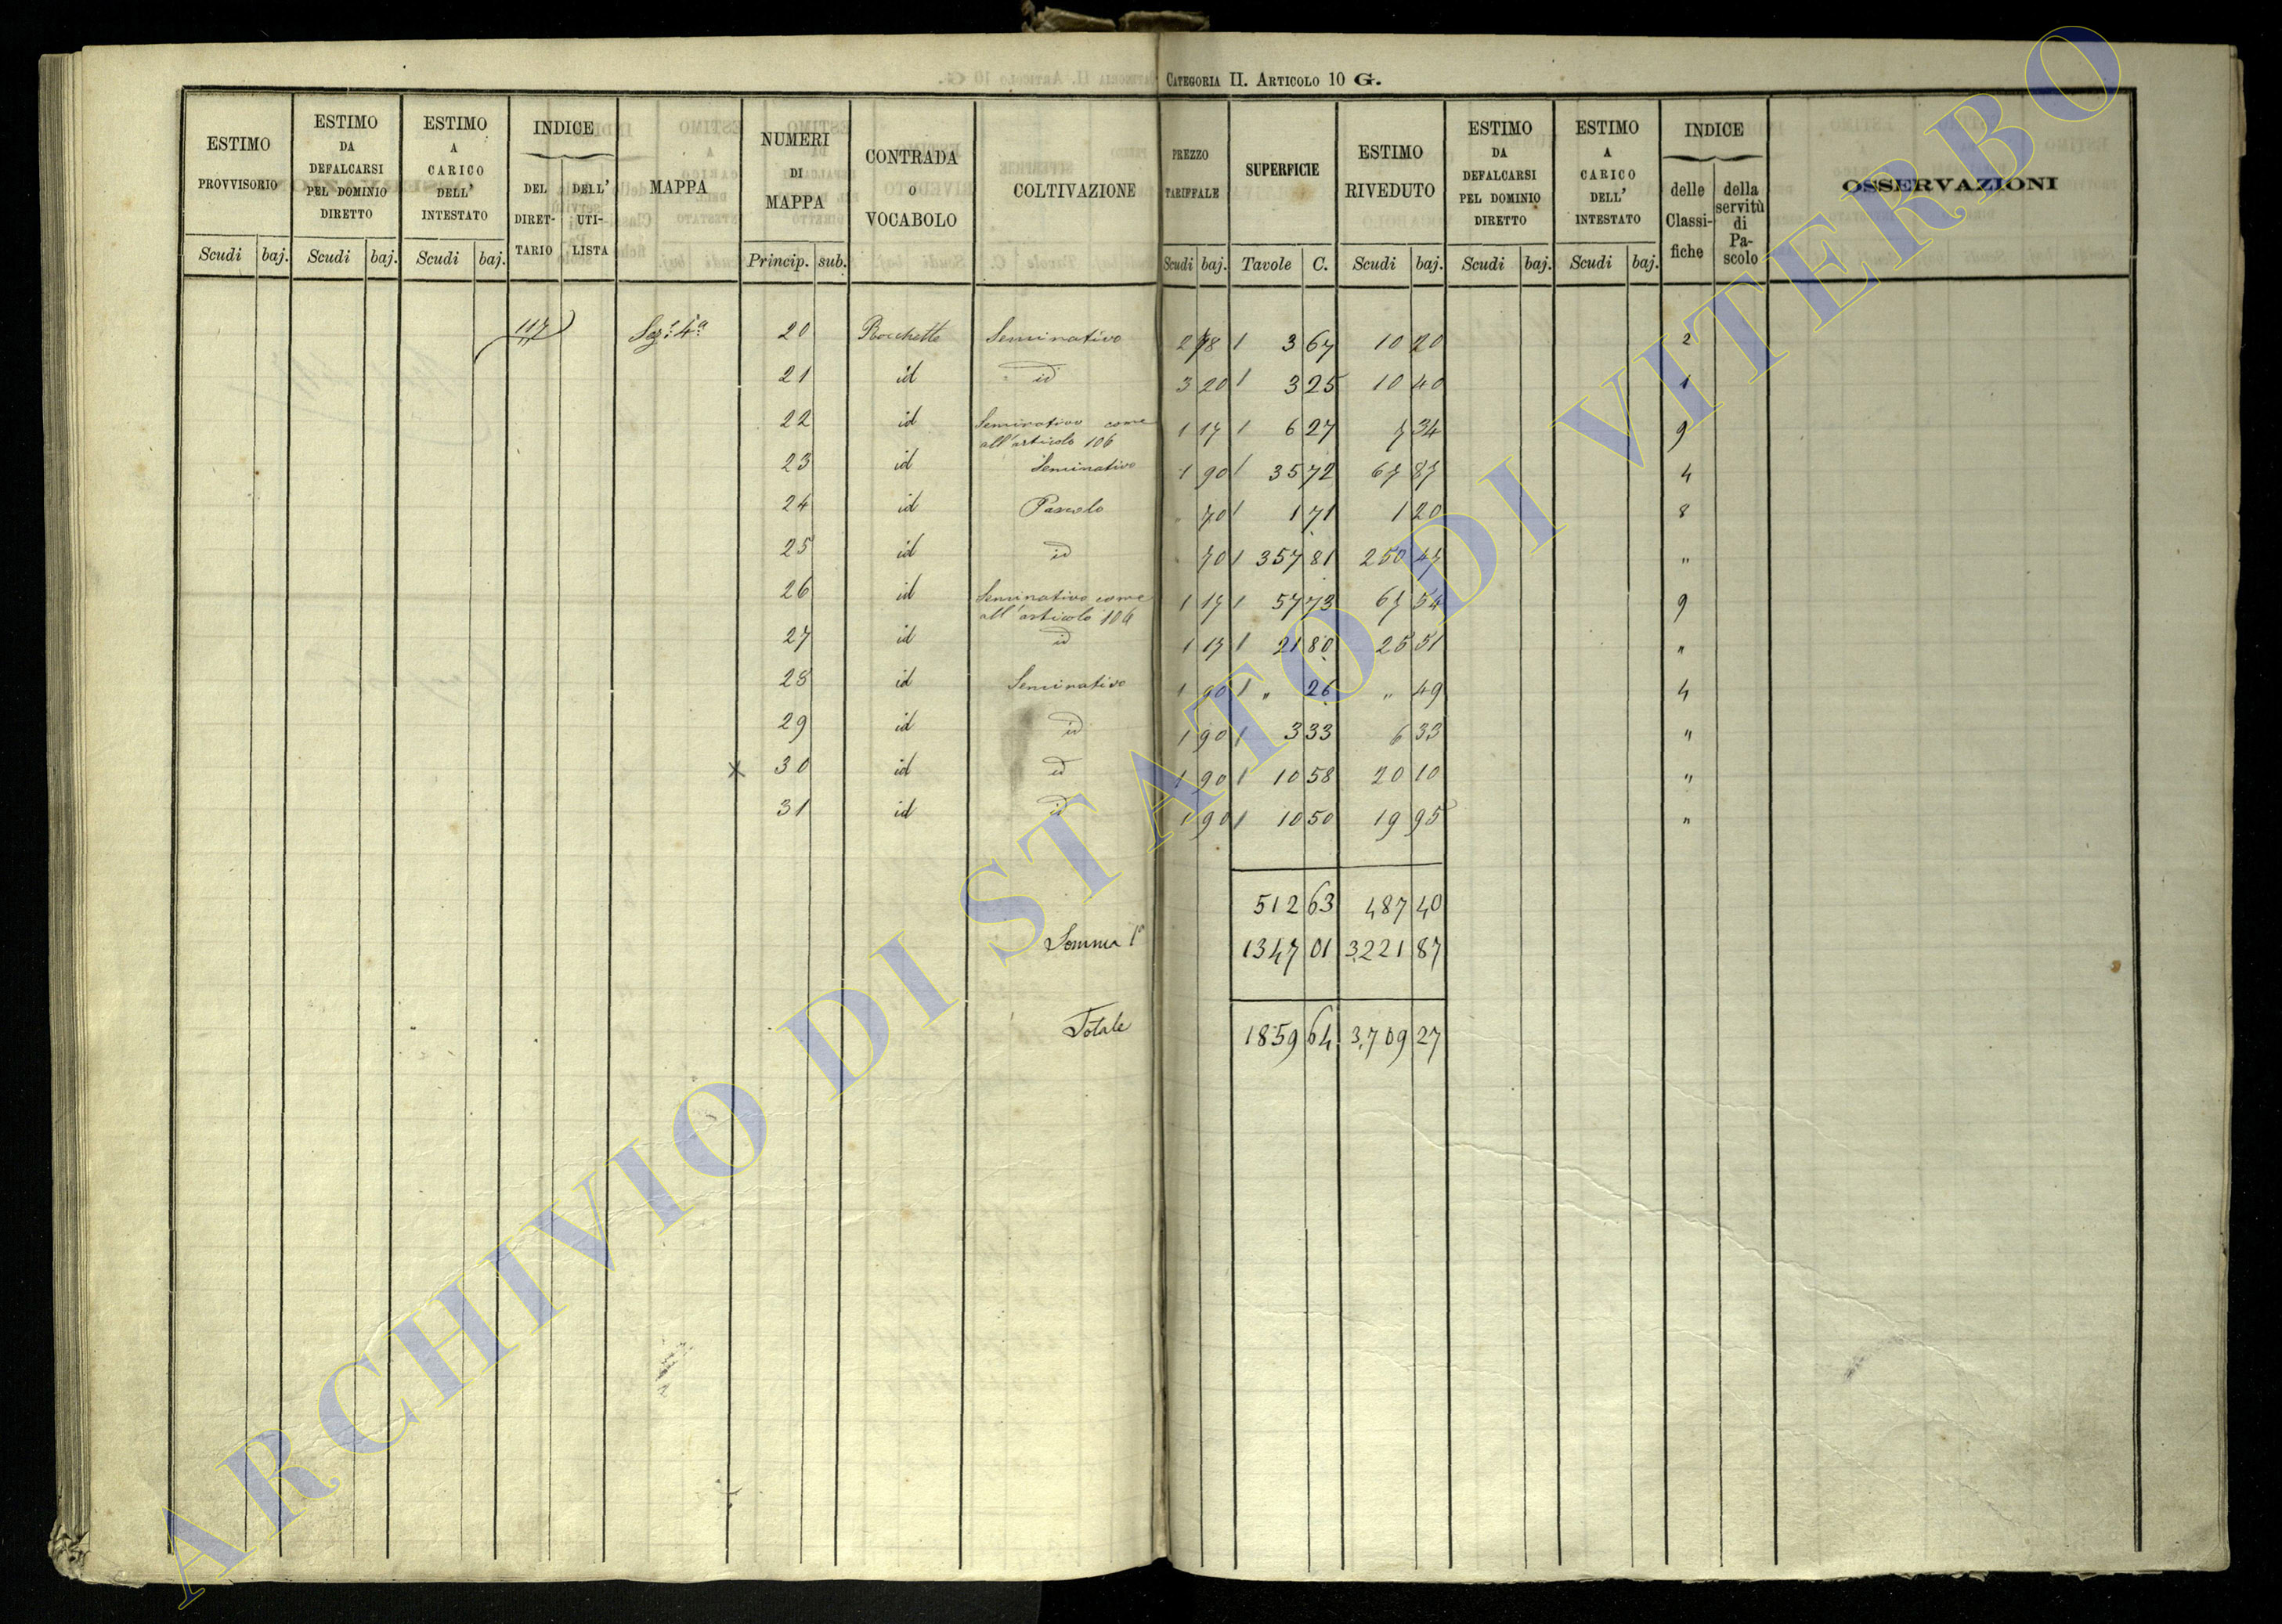 CATEGORIA II. ARTICOLO 10 G.
ESTIMO PROVVISORIO | ESTIMO DA DEFALCARSI PEL DOMINIO DIRETTO | ESTIMO A CARICO DELL' INTESTATO | INDICE | MAPPA | NUMERI DI MAPPA | CONTRADA O VOCABOLO | COLTIVAZIONE | PREZZO TARIFFALE | SUPERFICIE | ESTIMO RIVEDUTO | ESTIMO DA DEFALCARSI PEL DOMINIO DIRETTO | ESTIMO A CARICO DELL' INTESTATO | INDICE | OSSERVAZIONI
DEL DIRETTARIO | DELL' UTILISTA | delle Classifiche | della servitù di Pascolo
Scudi | baj. | Scudi | baj. | Scudi | baj. | Princip. | sub. | Scudi | baj. | Tavole | C. | Scudi | baj. | Scudi | baj. | Scudi | baj.
117 Sez: 4ª 20 Rocchette Seminativo 2 78 3 67 10 20 2
21 id id 3 20 3 25 10 40 1
22 id Seminativo come all'articolo 106 1 17 6 27 7 34 9
23 id Seminativo 1 90 35 72 67 87 4
24 id Pascolo " 70 1 71 1 20 8
25 id id " 70 357 81 250 47 "
26 id Seminativo come all'articolo 106 1 17 57 73 67 54 9
27 id id 1 17 21 80 25 51 "
28 id Seminativo 1 90 " 26 " 49 4
29 id id 1 90 3 33 6 33 "
× 30 id id 1 90 10 58 20 10 "
31 id id 1 90 10 50 19 95 "
512 63 487 40
Somma 1ª 1347 01 3221 87
Totale 1859 64 3,709 27
ARCHIVIO DI STATO DI VITERBO